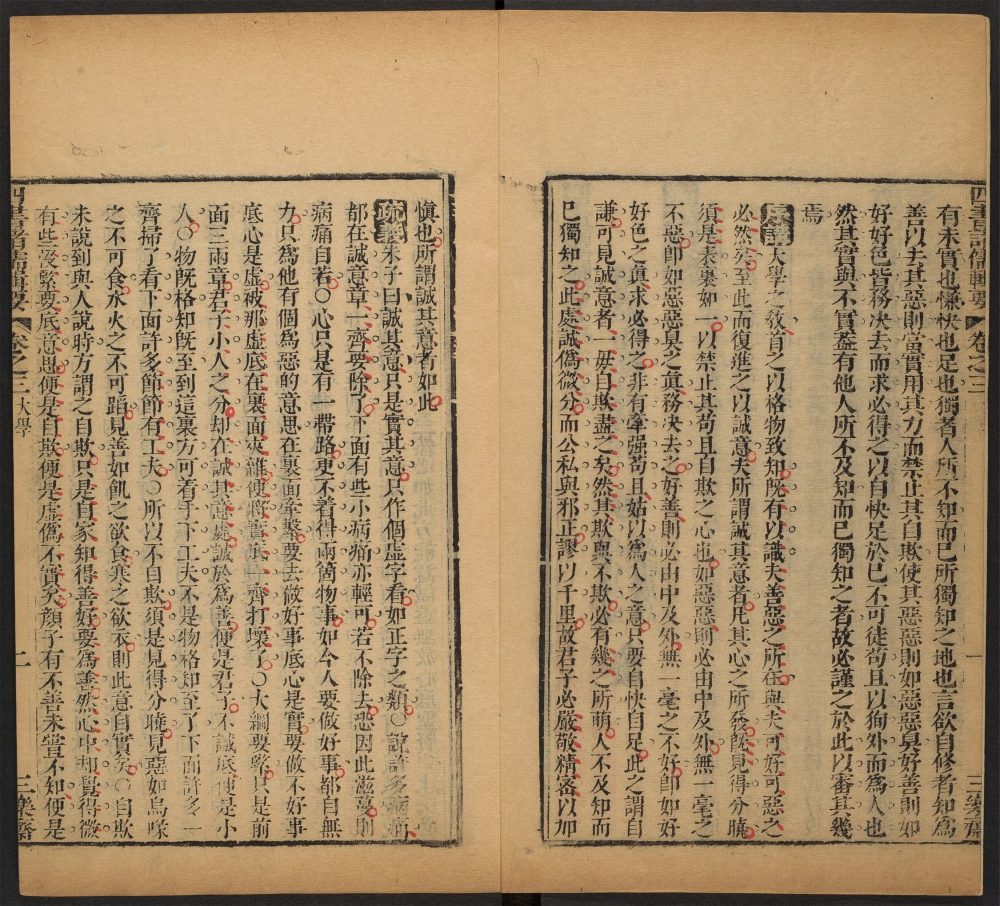 四書諸儒輯要 卷之三 一 三樂齋
有未實也慊快也足也獨者人所不知而己所獨知之地也言欲自修者知爲
善以去其惡則當實用其力而禁止其自欺使其惡惡則如惡惡臭好善則如
好好色皆務决去而求必得之以自快足於己不可徒苟且以狥外而爲人也
然其實與不實蓋有他人所不及知而己獨知之者故必謹之於此以審其幾
焉
大學之敎首之以格物致知既有以識夫善惡之所在與夫可好可惡之
必然矣至此而復進之以誠意夫所謂誠其意者凡其心之所發既見得分曉
須是表裏如一以禁止其苟且自欺之心也如惡惡則必由中及外無一毫之
不惡卽如惡惡臭之眞務决去之好善則必由中及外無一毫之不好卽如好
好色之眞求必得之非有牽強苟且姑以爲人之意只要自快自足此之謂自
謙可見誠意者一毋自欺盡之矣然其欺與不欺必有幾之所萌人不及知而
已獨知之此處誠僞微分而公私與邪正謬以千里故君子必嚴敬精密以加
慎也所謂誠其意者如此
朱子曰誠其意只是實其意只作個虛字看如正字之類〇說許多病痛
都在誠意章一齊要除了下面有些小病痛亦輕可若不除去恐因此滋蔓則
病痛自若〇心只是有一帶路更不着得兩箇物事如今人要做好事都自無
力只爲他有個爲惡的意思在裏面牽繫要去做好事底心是實要做不好事
底心是虛被那虛底在裏面夾雜便將實底一齊打壞了〇大綱要緊只是前
面三兩章君子小人之分却在誠其意處誠於爲善便是君子不誠底便是小
人〇物既格知既至到這裏方可着手下工夫不是物格知至了下面許多一
齊掃了看下面許多節節有工夫〇所以不自欺須是見得分曉見惡如烏喙
之不可食水火之不可蹈見善如飢之欲食寒之欲衣則此意自實矣〇自欺
未說到與人說時方謂之自欺只是自家知得善好要爲善然心中却覺得微
有些沒緊要底意思便是自欺便是虛僞不實矣顏子有不善未嘗不知便是
四書諸儒輯要 卷之三 大學 二 三樂齋